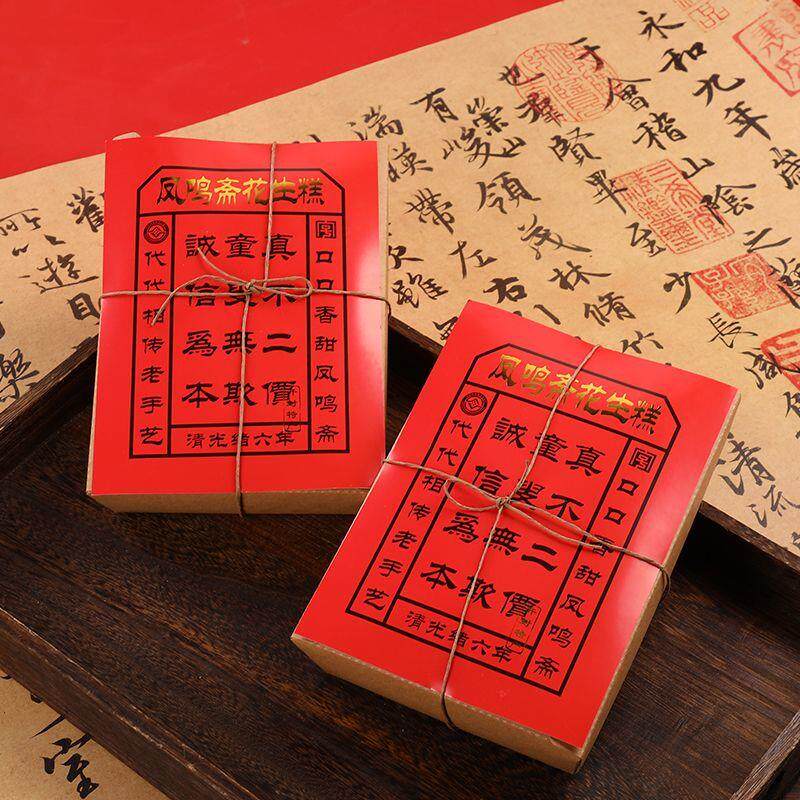 凤鸣斋花生糕
口口香甜凤鸣斋
真不二價
童叟無欺
誠信為本
代代相传老手艺
清光绪六年
凤鸣斋花生糕
口口香甜凤鸣斋
真不二價
童叟無欺
誠信為本
代代相传老手艺
清光绪六年
永和九年歲
于會稽山陰之
也群賢畢至少長咸
有崇山峻領茂林脩竹
清流
湍暎帶左右
雖
所以遊目
樂